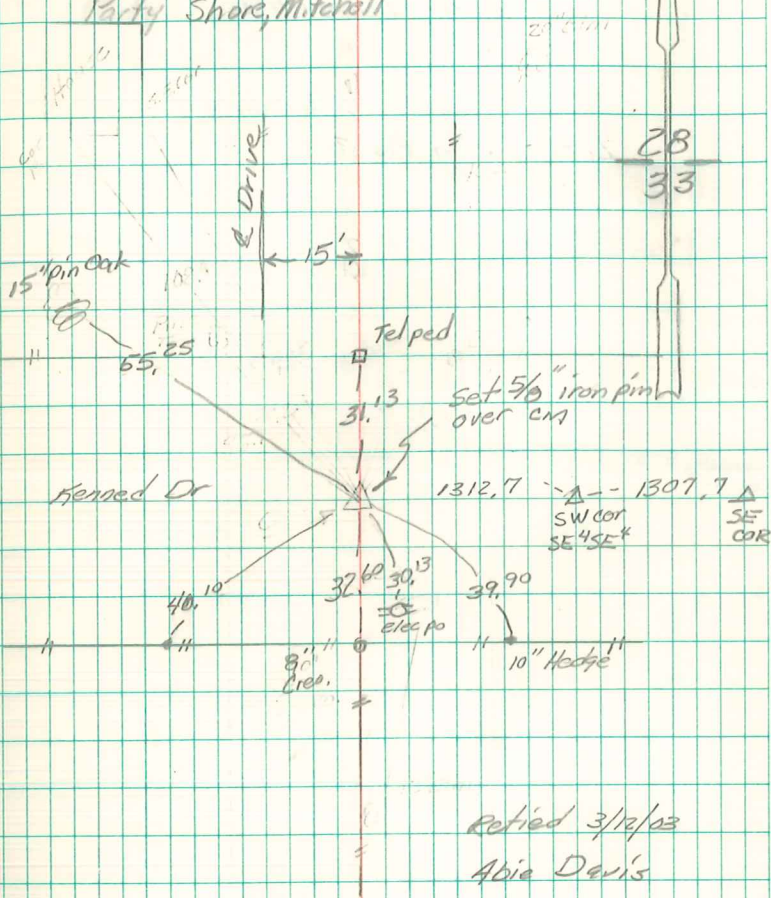 Party Shore, Mitchell
28
33
℄ Drive
15'
15" pin Oak
Tel ped
55.25
31.13
Set 5/8" iron pin
over cm
Kenned Dr
1312.7
1307.7
SW cor
SE⁴SE⁴
SE
COR
32.60
30.13
39.90
40.10
elec po
8"
10" Hedge
Retied 3/12/03
Abie Davis